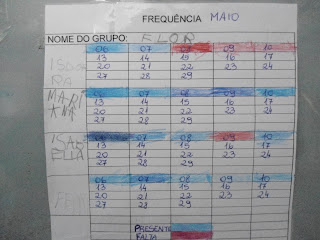 FREQUÊNCIA MAIO
NOME DO GRUPO: FLOR
06 07 08 09 10
ISADO 13 14 15 16 17
RA 20 21 22 23 24
27 28 29
MARI 06 07 08 09 10
ANA 13 14 15 16 17
20 21 22 23 24
27 28 29
ISAB 06 07 08 09 10
ELLA 13 14 15 16 17
20 21 22 23 24
27 28 29
06 07 08 09 10
13 14 15 16 17
20 21 22 23 24
27 28 29
PRESENTE
FALTA